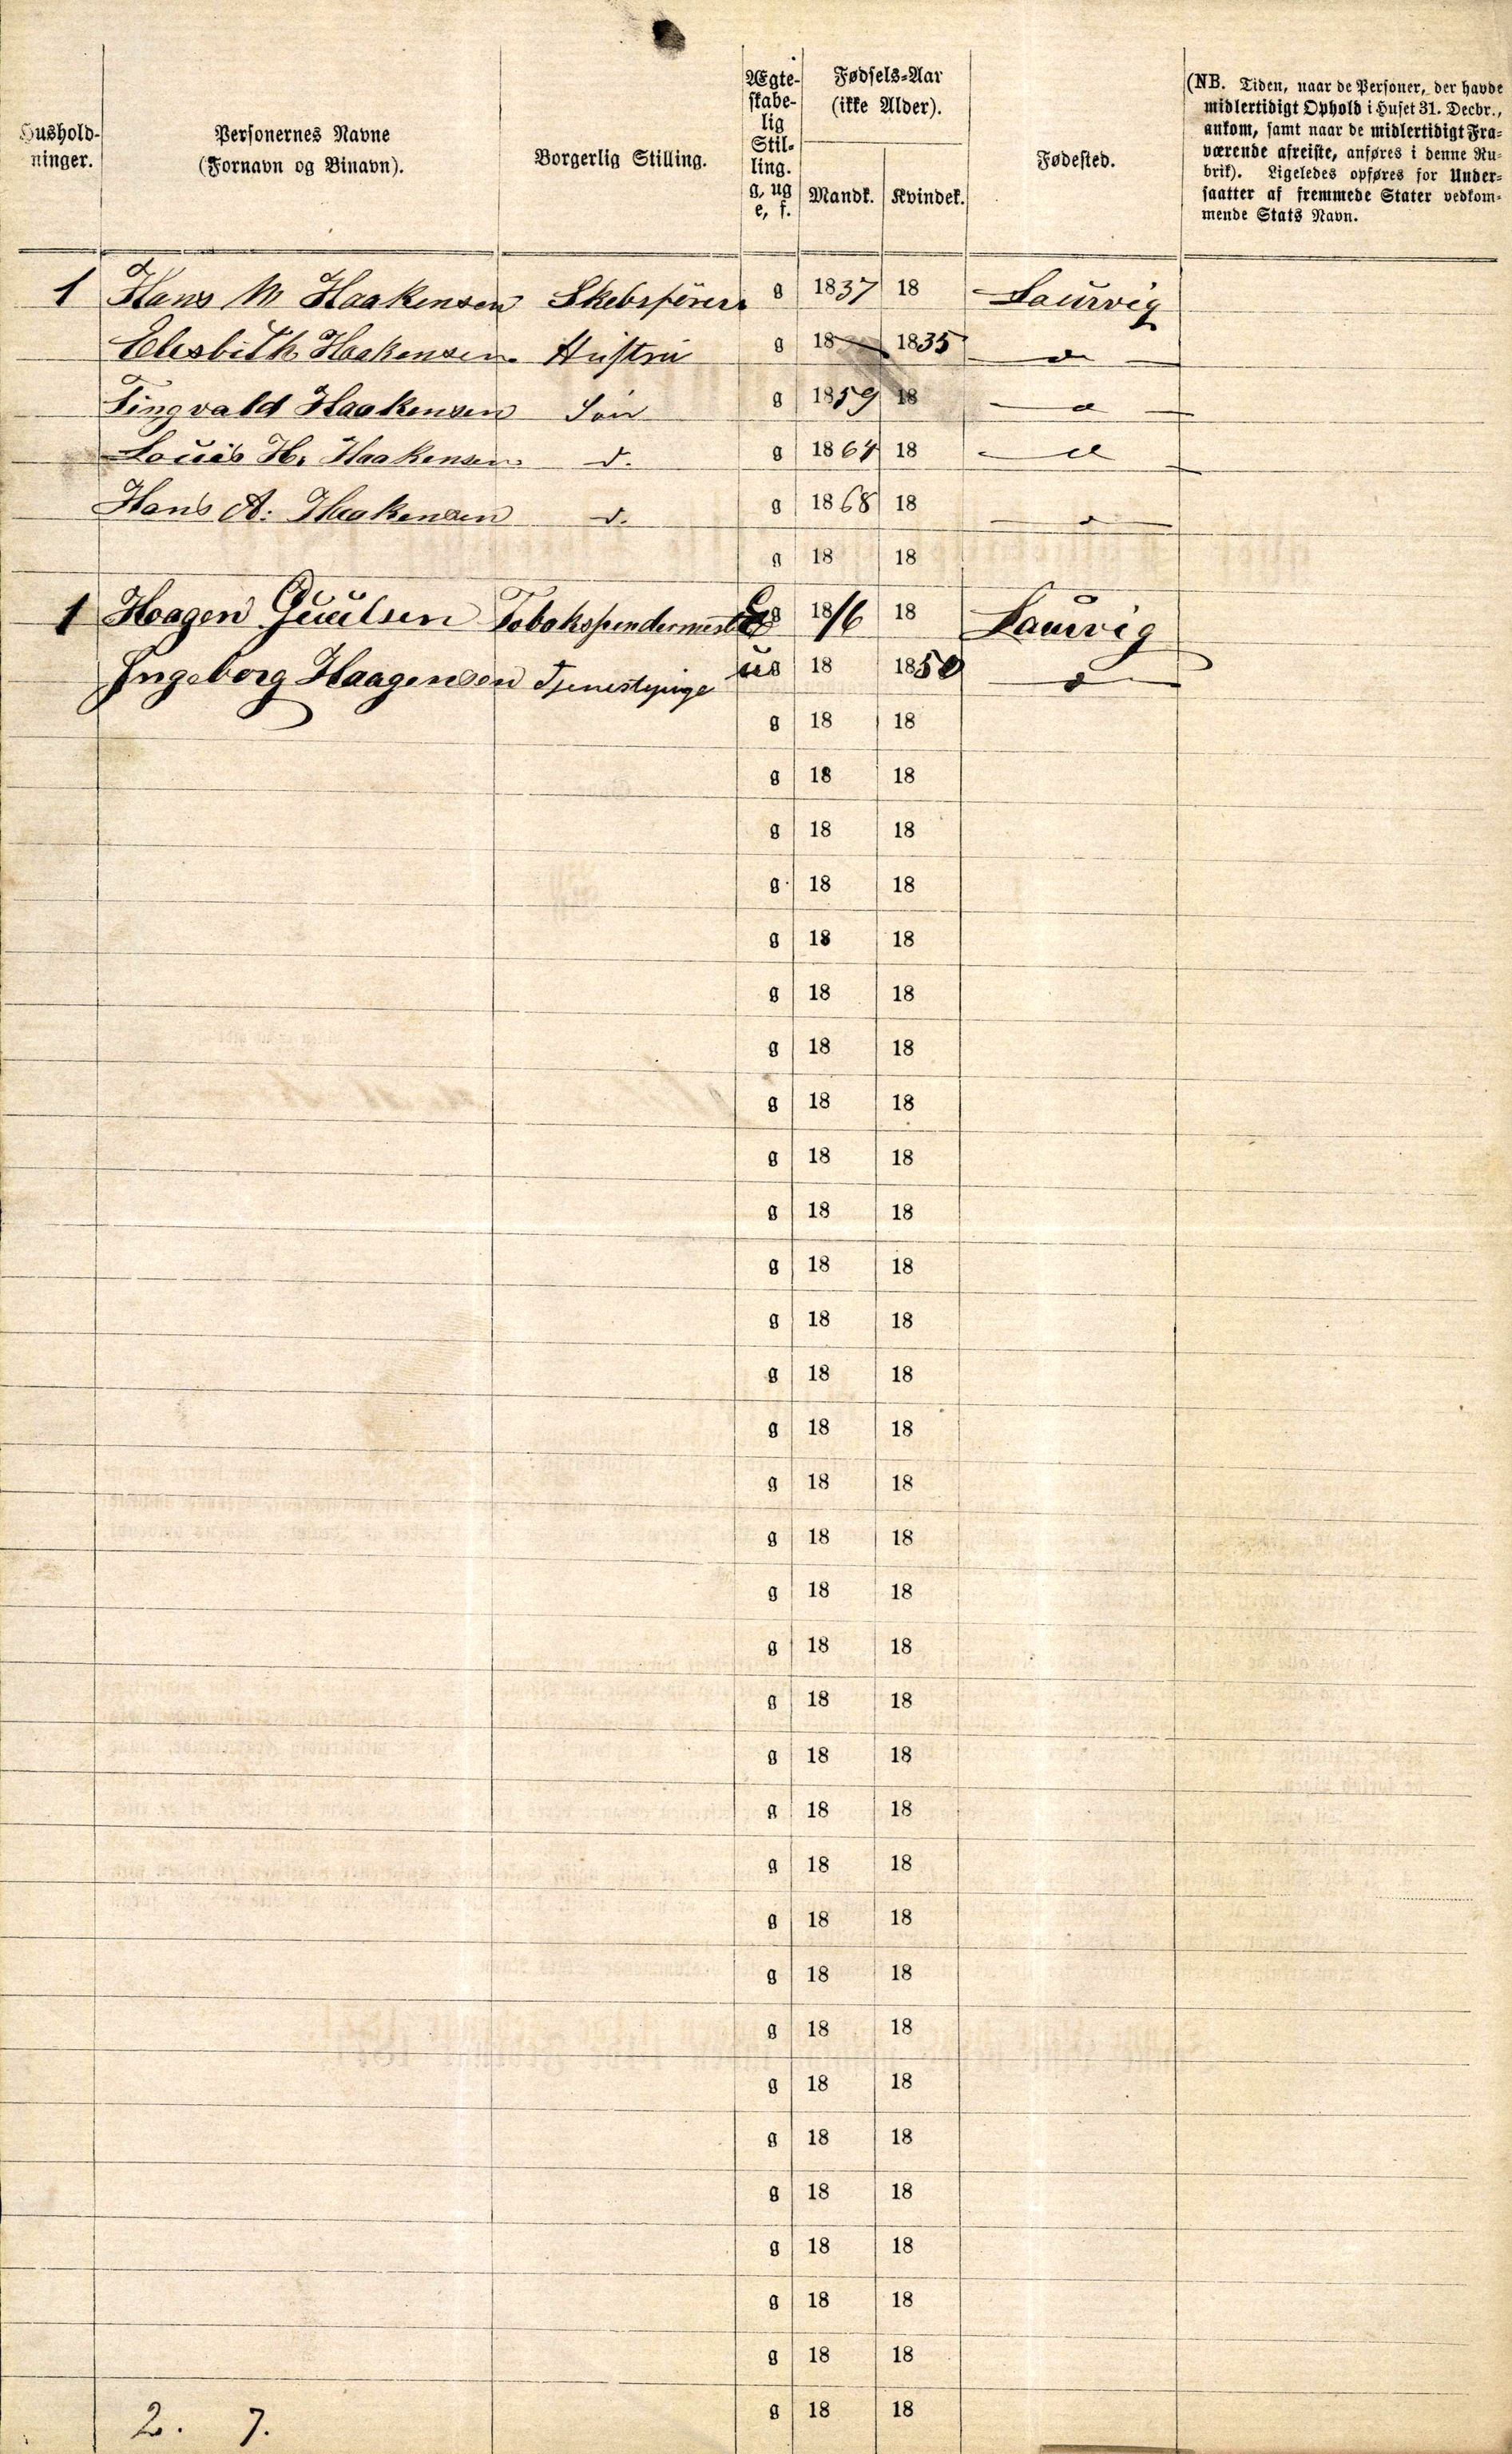 Hushold-
ninger.
Personernes Navne
(Fornavn og Binavn).
Borgerlig Stilling.
Ægte-
skabe-
lig
Stil-
ling.
g, ug
e, f.
Fødsels-Aar
(ikke Alder).
Mandk.
Kvindek.
Fødested.
(NB. Tiden, naar de Personer, der havde
midlertidigt Ophold i Huset 31. Decbr.,
ankom, samt naar de midlertidigt Fra-
værende afreiste, anføres i denne Ru-
brik). Ligeledes opføres for Under-
saatter af fremmede Stater vedkom-
mende Stats Navn.
1 Hans M Haakensen Skebsförer g 1837 18 Laurvig
Elesbith Haakensen Hustru g 18 1835 d
Tingvald Haakensen Sön g 1859 18 d
Louis H. Haakensen d. g 1864 18 d
Hans A. Haakensen d. g 1868 18 d
g 18 18
1 Haagen Guulsen Tobakspindermester g 1816 18 Laurvig
Ingeborg Haagensen Tjenestepige ug 18 1850 d
g 18 18
g 18 18
g 18 18
g 18 18
g 18 18
g 18 18
g 18 18
g 18 18
g 18 18
g 18 18
g 18 18
g 18 18
g 18 18
g 18 18
g 18 18
g 18 18
g 18 18
g 18 18
g 18 18
g 18 18
g 18 18
g 18 18
g 18 18
g 18 18
g 18 18
g 18 18
g 18 18
g 18 18
g 18 18
g 18 18
g 18 18
2. 7. g 18 18